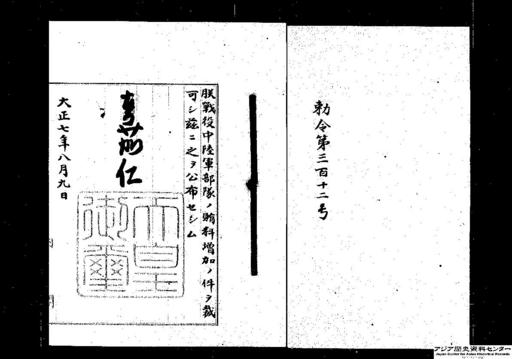 勅令第三百十二号
朕戰役中陸軍部隊ノ賄料増加ノ件ヲ裁
可シ茲ニ之ヲ公布セシム
嘉仁
天皇
御璽
大正七年八月九日
アジア歴史資料センター
Japan Center for Asian Historical Records